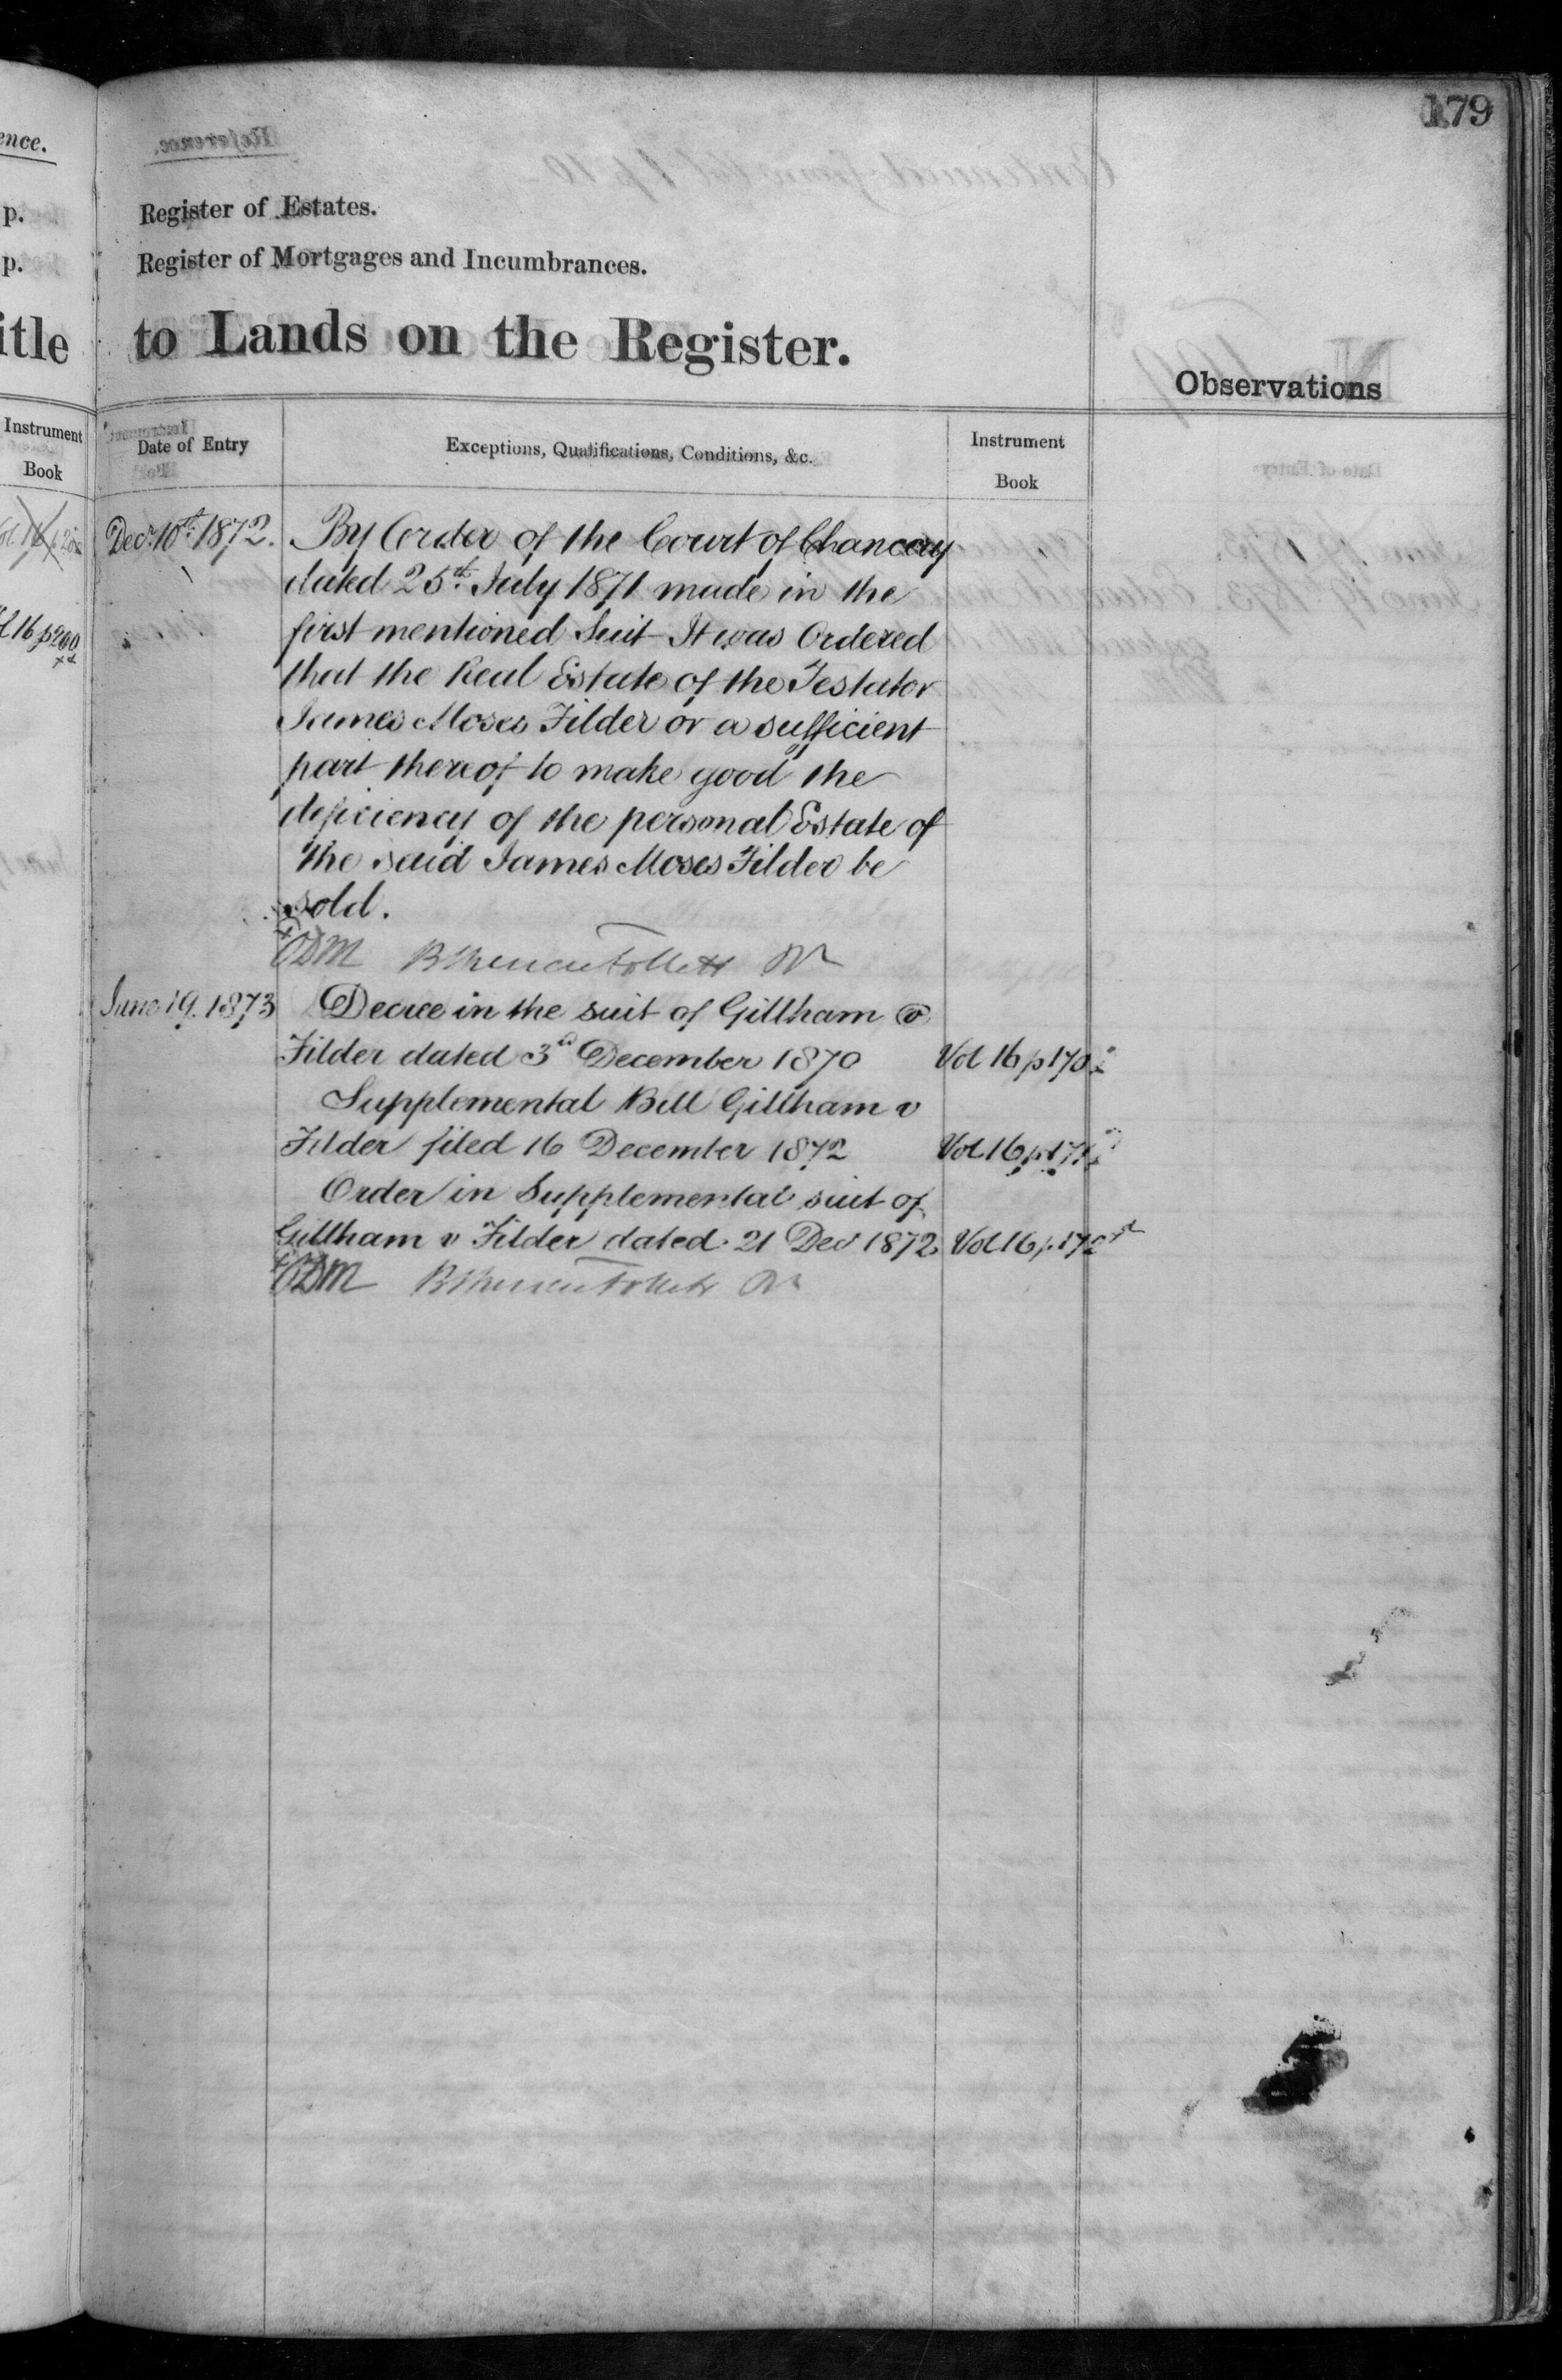 179
ence.
p.
Register of Estates.
p.
Register of Mortgages and Incumbrances.
itle
to Lands on the Register.
Observations
Instrument
Book
Date of Entry
Exceptions, Qualifications, Conditions, &c.
Instrument
Book
l 16 p 200
Decr. 10th. 1872.
By Order of the Court of Chancery
dated 25th. July 1871 made in the
first mentioned Suit It was Ordered
that the Real Estate of the Testator
James Moses Filder or a sufficient
part thereof to make good the
deficiency of the personal Estate of
the said James Moses Filder be
sold.
ODM Follett
June 19. 1873
Decree in the suit of Gillham v
Filder dated 3d December 1870 Vol 16 p 170
Supplemental Bill Gillham v
Filder filed 16 December 1872 Vol 16 p 171
Order in Supplemental suit of
Gillham v Filder dated 21 Decr 1872. Vol 16 p. 172
ODM Follett